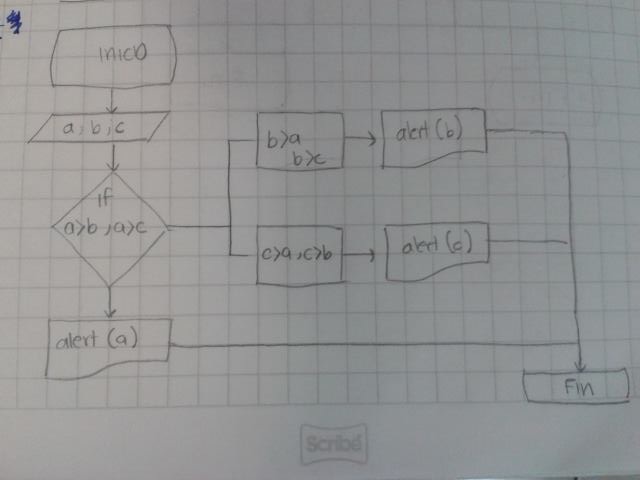 inicio
a, b, c
If
a>b, a>c
b>a
b>c
alert (b)
c>a, c>b
alert (c)
alert (a)
Fin
Scribe